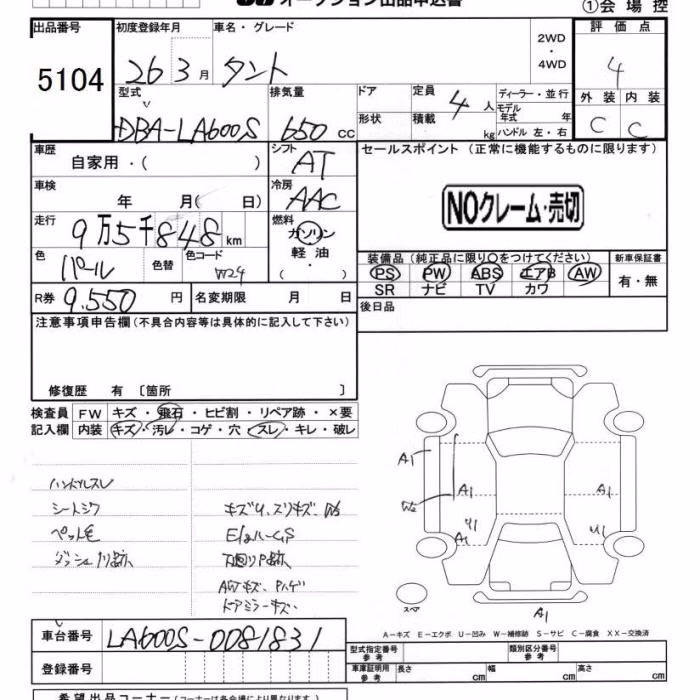 オークション出品申込書
①会場控
出品番号 初度登録年月 車名・グレード 2WD・4WD 評価点
5104 26 3月 タント 4
型式 排気量 ドア形状 定員積載 4人 kg ディーラー・並行 モデル年式 年 ハンドル 左・右 外装 内装
DBA-LA600S 650cc C C
車歴 シフト セールスポイント (正常に機能するものに限ります)
自家用・( ) AT
車検 冷房
年 月( 日) AAC NOクレーム・売切
走行 燃料
9万5千848km ガソリン
軽油
・( )
色 色替 色コード 装備品 (純正品に限り○をつけてください) 新車保証書
パール W24 PS PW ABS エアB AW 有・無
SR ナビ TV カワ
R券 9.550円 名変期限 月 日 後日品
注意事項申告欄(不具合内容等は具体的に記入して下さい)
修復歴 有 〔箇所 〕
検査員 FW キズ・飛石・ヒビ割・リペア跡・×要
記入欄 内装 キズ・汚レ・コゲ・穴・スレ・キレ・破レ
ハンドルスレ
シートシワ
ペット毛
キズU、スリキズ、
下廻りP跡
AWキズ、Pハゲ
ドアミラーキズ
A1
A1
A1
A1
スペア
A1
A-キズ E-エクボ U-凹み W-補修跡 S-サビ C-腐食 XX-交換済
車台番号 LA600S-0081831
型式指定番号 参考 類別区分番号 参考
登録番号
車庫証明用 参考 長さ cm 幅 cm 高さ cm
希望出品コーナー(コーナーは各会場により異なります)